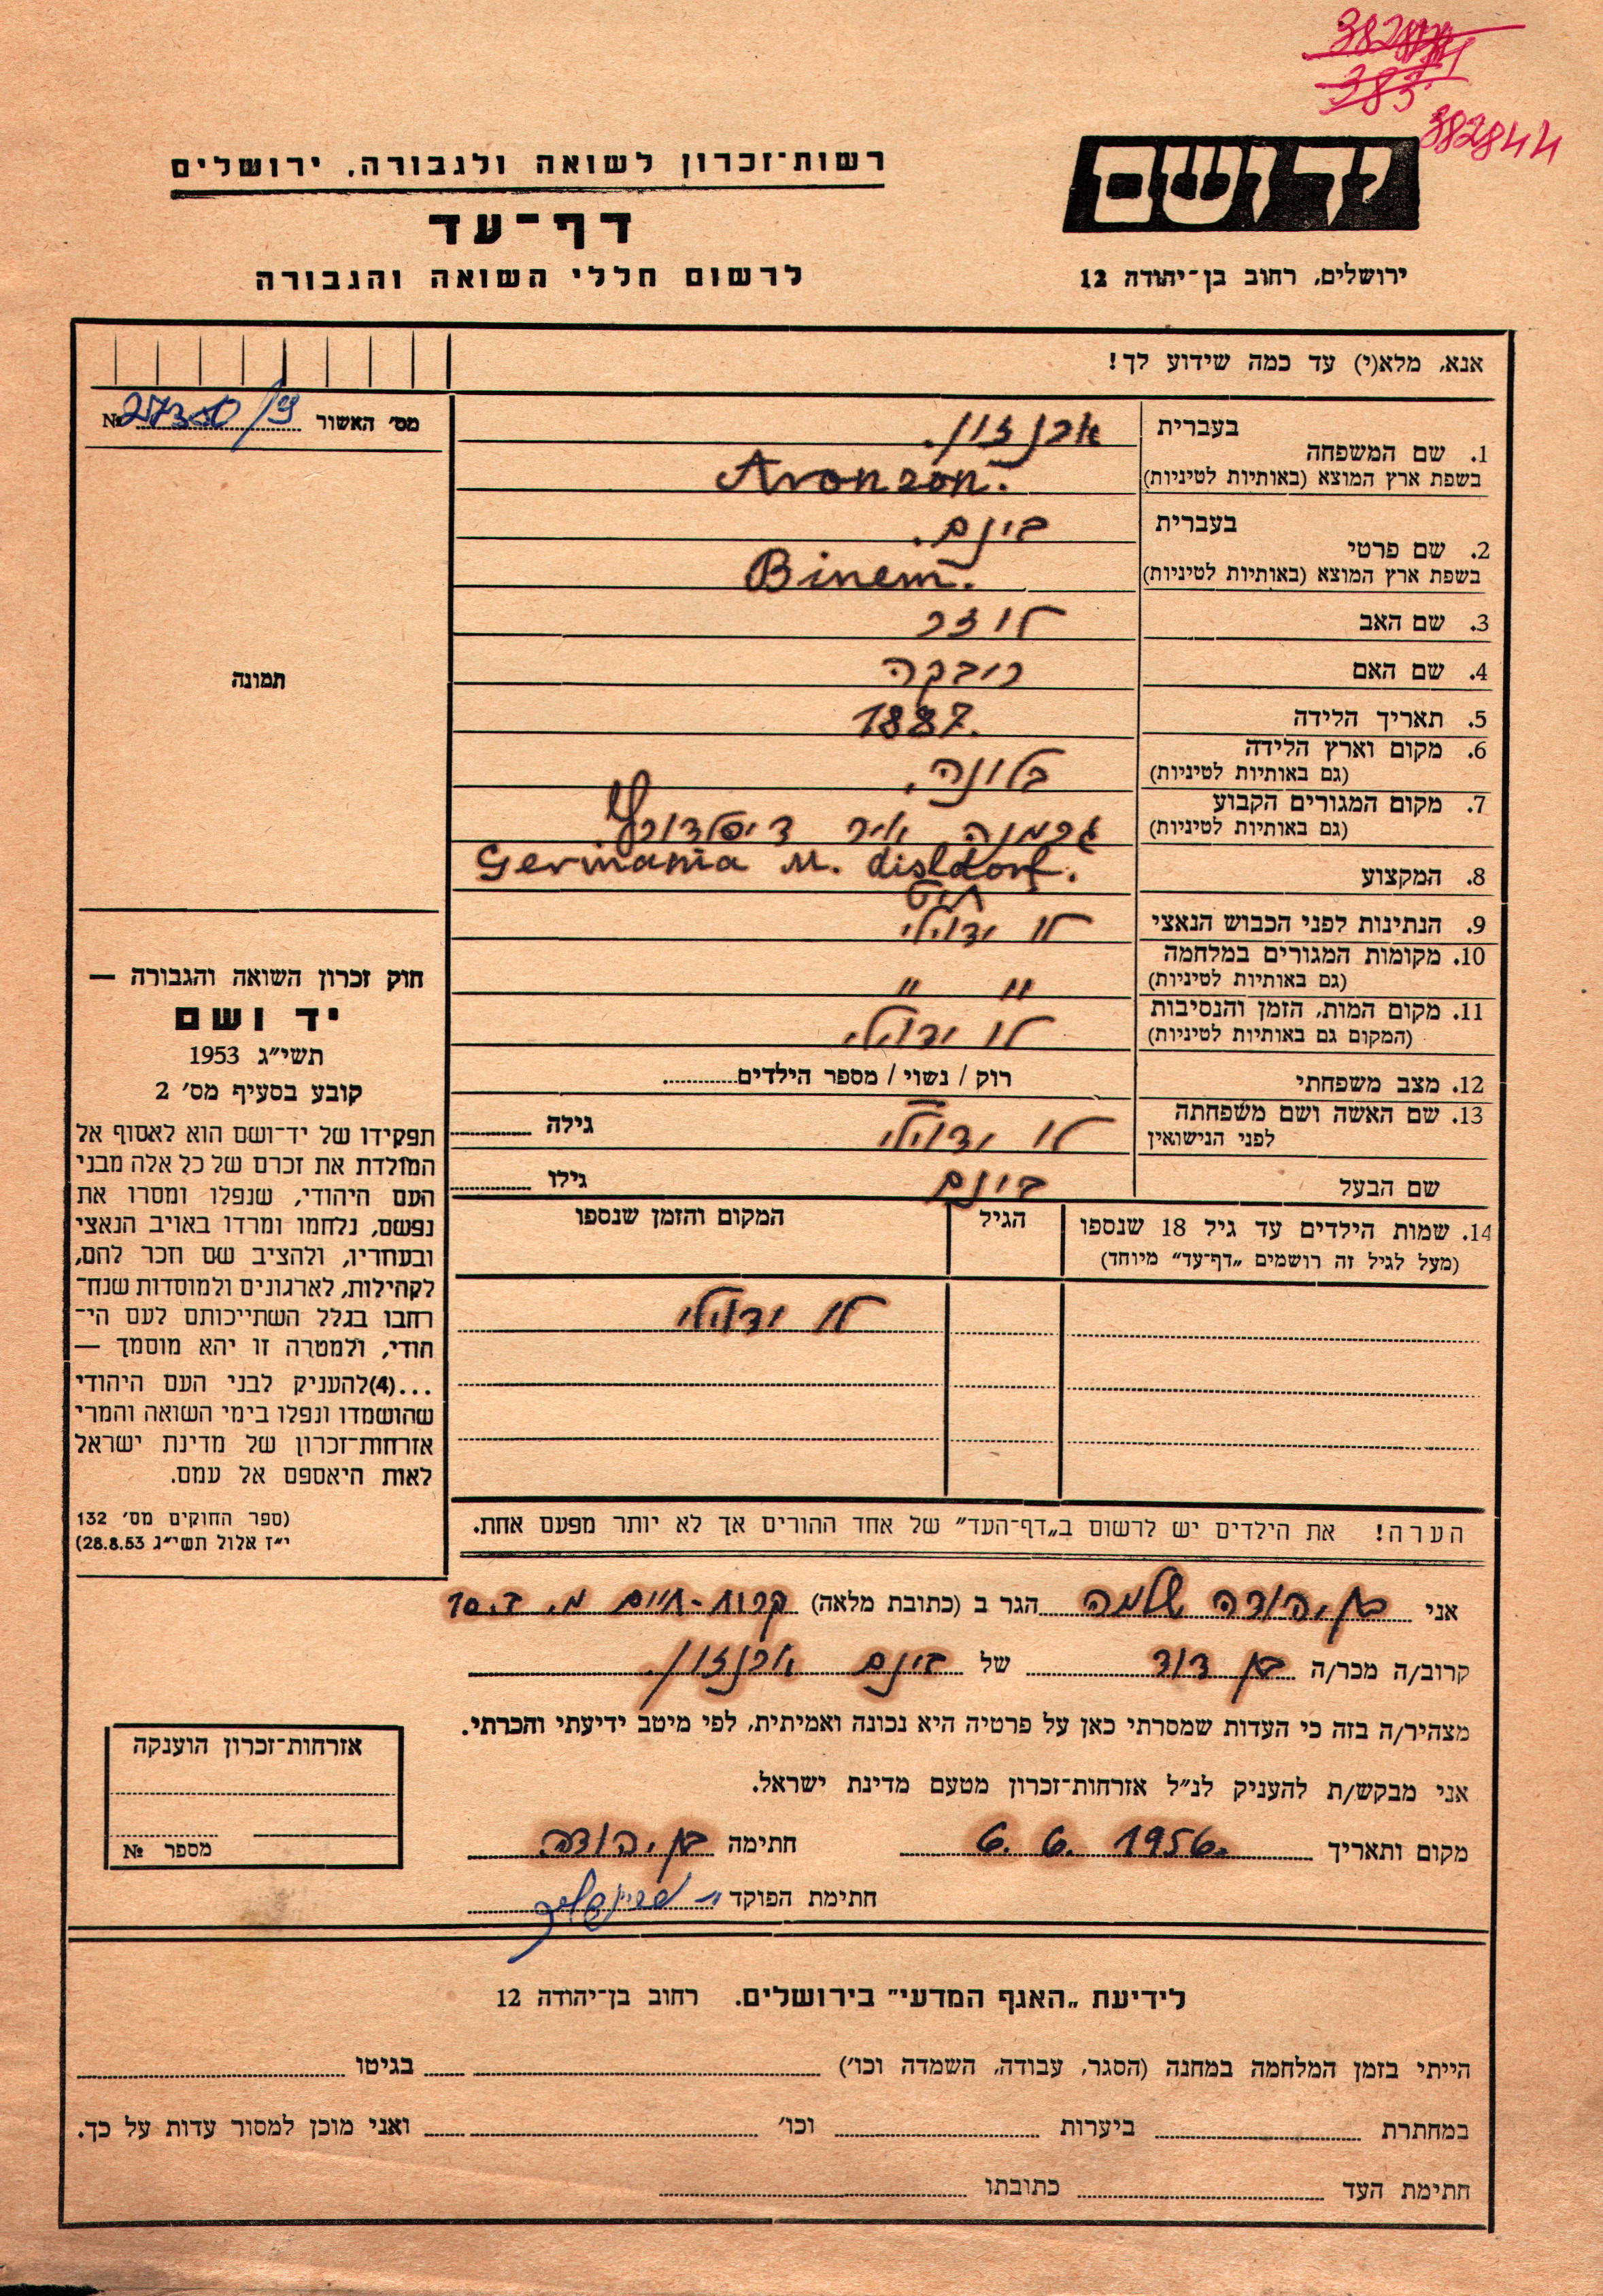 382844
רשות־זכרון לשואה ולגבורה, ירושלים
יד ושם
דף־עד
לרשום חללי השואה והגבורה
ירושלים, רחוב בן־יהודה 12
אנא, מלא(י) עד כמה שידוע לך!
מס׳ האשור № 27350/99
1. שם המשפחה בעברית ארנזון.
בשפת ארץ המוצא (באותיות לטיניות) Aronzon.
2. שם פרטי בעברית בינם.
בשפת ארץ המוצא (באותיות לטיניות) Binem.
3. שם האב לוזר
4. שם האם ריבקה
5. תאריך הלידה 1887.
6. מקום וארץ הלידה
(גם באותיות לטיניות)
7. מקום המגורים הקבוע גרמניה עיר דיסלדורף
(גם באותיות לטיניות) Germania M. disldorf.
8. המקצוע
9. הנתינות לפני הכבוש הנאצי לו ידוע לי
10. מקומות המגורים במלחמה " "
(גם באותיות לטיניות)
11. מקום המות, הזמן והנסיבות לו ידוע לי
(המקום גם באותיות לטיניות)
12. מצב משפחתי רוק / נשוי / מספר הילדים
13. שם האשה ושם משפחתה לו ידוע לי גילה
לפני הנישואין
שם הבעל בינם גילו
14. שמות הילדים עד גיל 18 שנספו הגיל המקום והזמן שנספו
(מעל לגיל זה רושמים „דף־עד״ מיוחד)
לו ידוע לי
הערה! את הילדים יש לרשום ב„דף־העד״ של אחד ההורים אך לא יותר מפעם אחת.
תמונה
חוק זכרון השואה והגבורה —
יד ושם
תשי״ג 1953
קובע בסעיף מס׳ 2
תפקידו של יד־ושם הוא לאסוף אל
המולדת את זכרם של כל אלה מבני
העם היהודי, שנפלו ומסרו את
נפשם, נלחמו ומרדו באויב הנאצי
ובעוזריו, ולהציב שם וזכר להם,
לקהילות, לארגונים ולמוסדות שנח־
רחבו בגלל השתייכותם לעם הי־
הודי, ולמטרה זו יהא מוסמך —
...(4)להעניק לבני העם היהודי
שהושמדו ונפלו בימי השואה והמרי
אזרחות־זכרון של מדינת ישראל
לאות היאספם אל עמם.
(ספר החוקים מס׳ 132
י״ז אלול תשי״ג 28.8.53)
אני בן יהודה שלמה הגר ב (כתובת מלאה) קרית-חיים מ. ד. 10
קרוב/ה מכר/ה בן דוד של בינם ארנזון.
מצהיר/ה בזה כי העדות שמסרתי כאן על פרטיה היא נכונה ואמיתית, לפי מיטב ידיעתי והכרתי.
אני מבקש/ת להעניק לנ״ל אזרחות־זכרון מטעם מדינת ישראל.
מקום ותאריך 6. 6. 1956. חתימה בן יהודה
חתימת הפוקד
אזרחות־זכרון הוענקה
מספר №
לידיעת „האגף המדעי״ בירושלים. רחוב בן־יהודה 12
הייתי בזמן המלחמה במחנה (הסגר, עבודה, השמדה וכו׳) בגיטו
במחתרת ביערות וכו׳ ואני מוכן למסור עדות על כך.
חתימת העד כתובתו